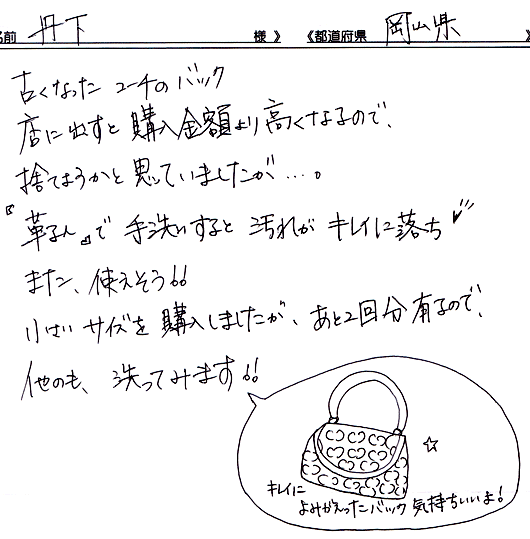 名前 丹下 様 》 《都道府県 岡山県 》
古くなった コーチの バック
店に出すと 購入金額より高くなるので、
捨てようかと思っていましたが…。
『革るん』で 手洗いすると 汚れが キレイに落ち
また、使えそう!!
小さいサイズを 購入しましたが、あと2回分 有るので、
他のも、洗ってみます!!
キレイに
よみがえったバック 気持ちいいよ!